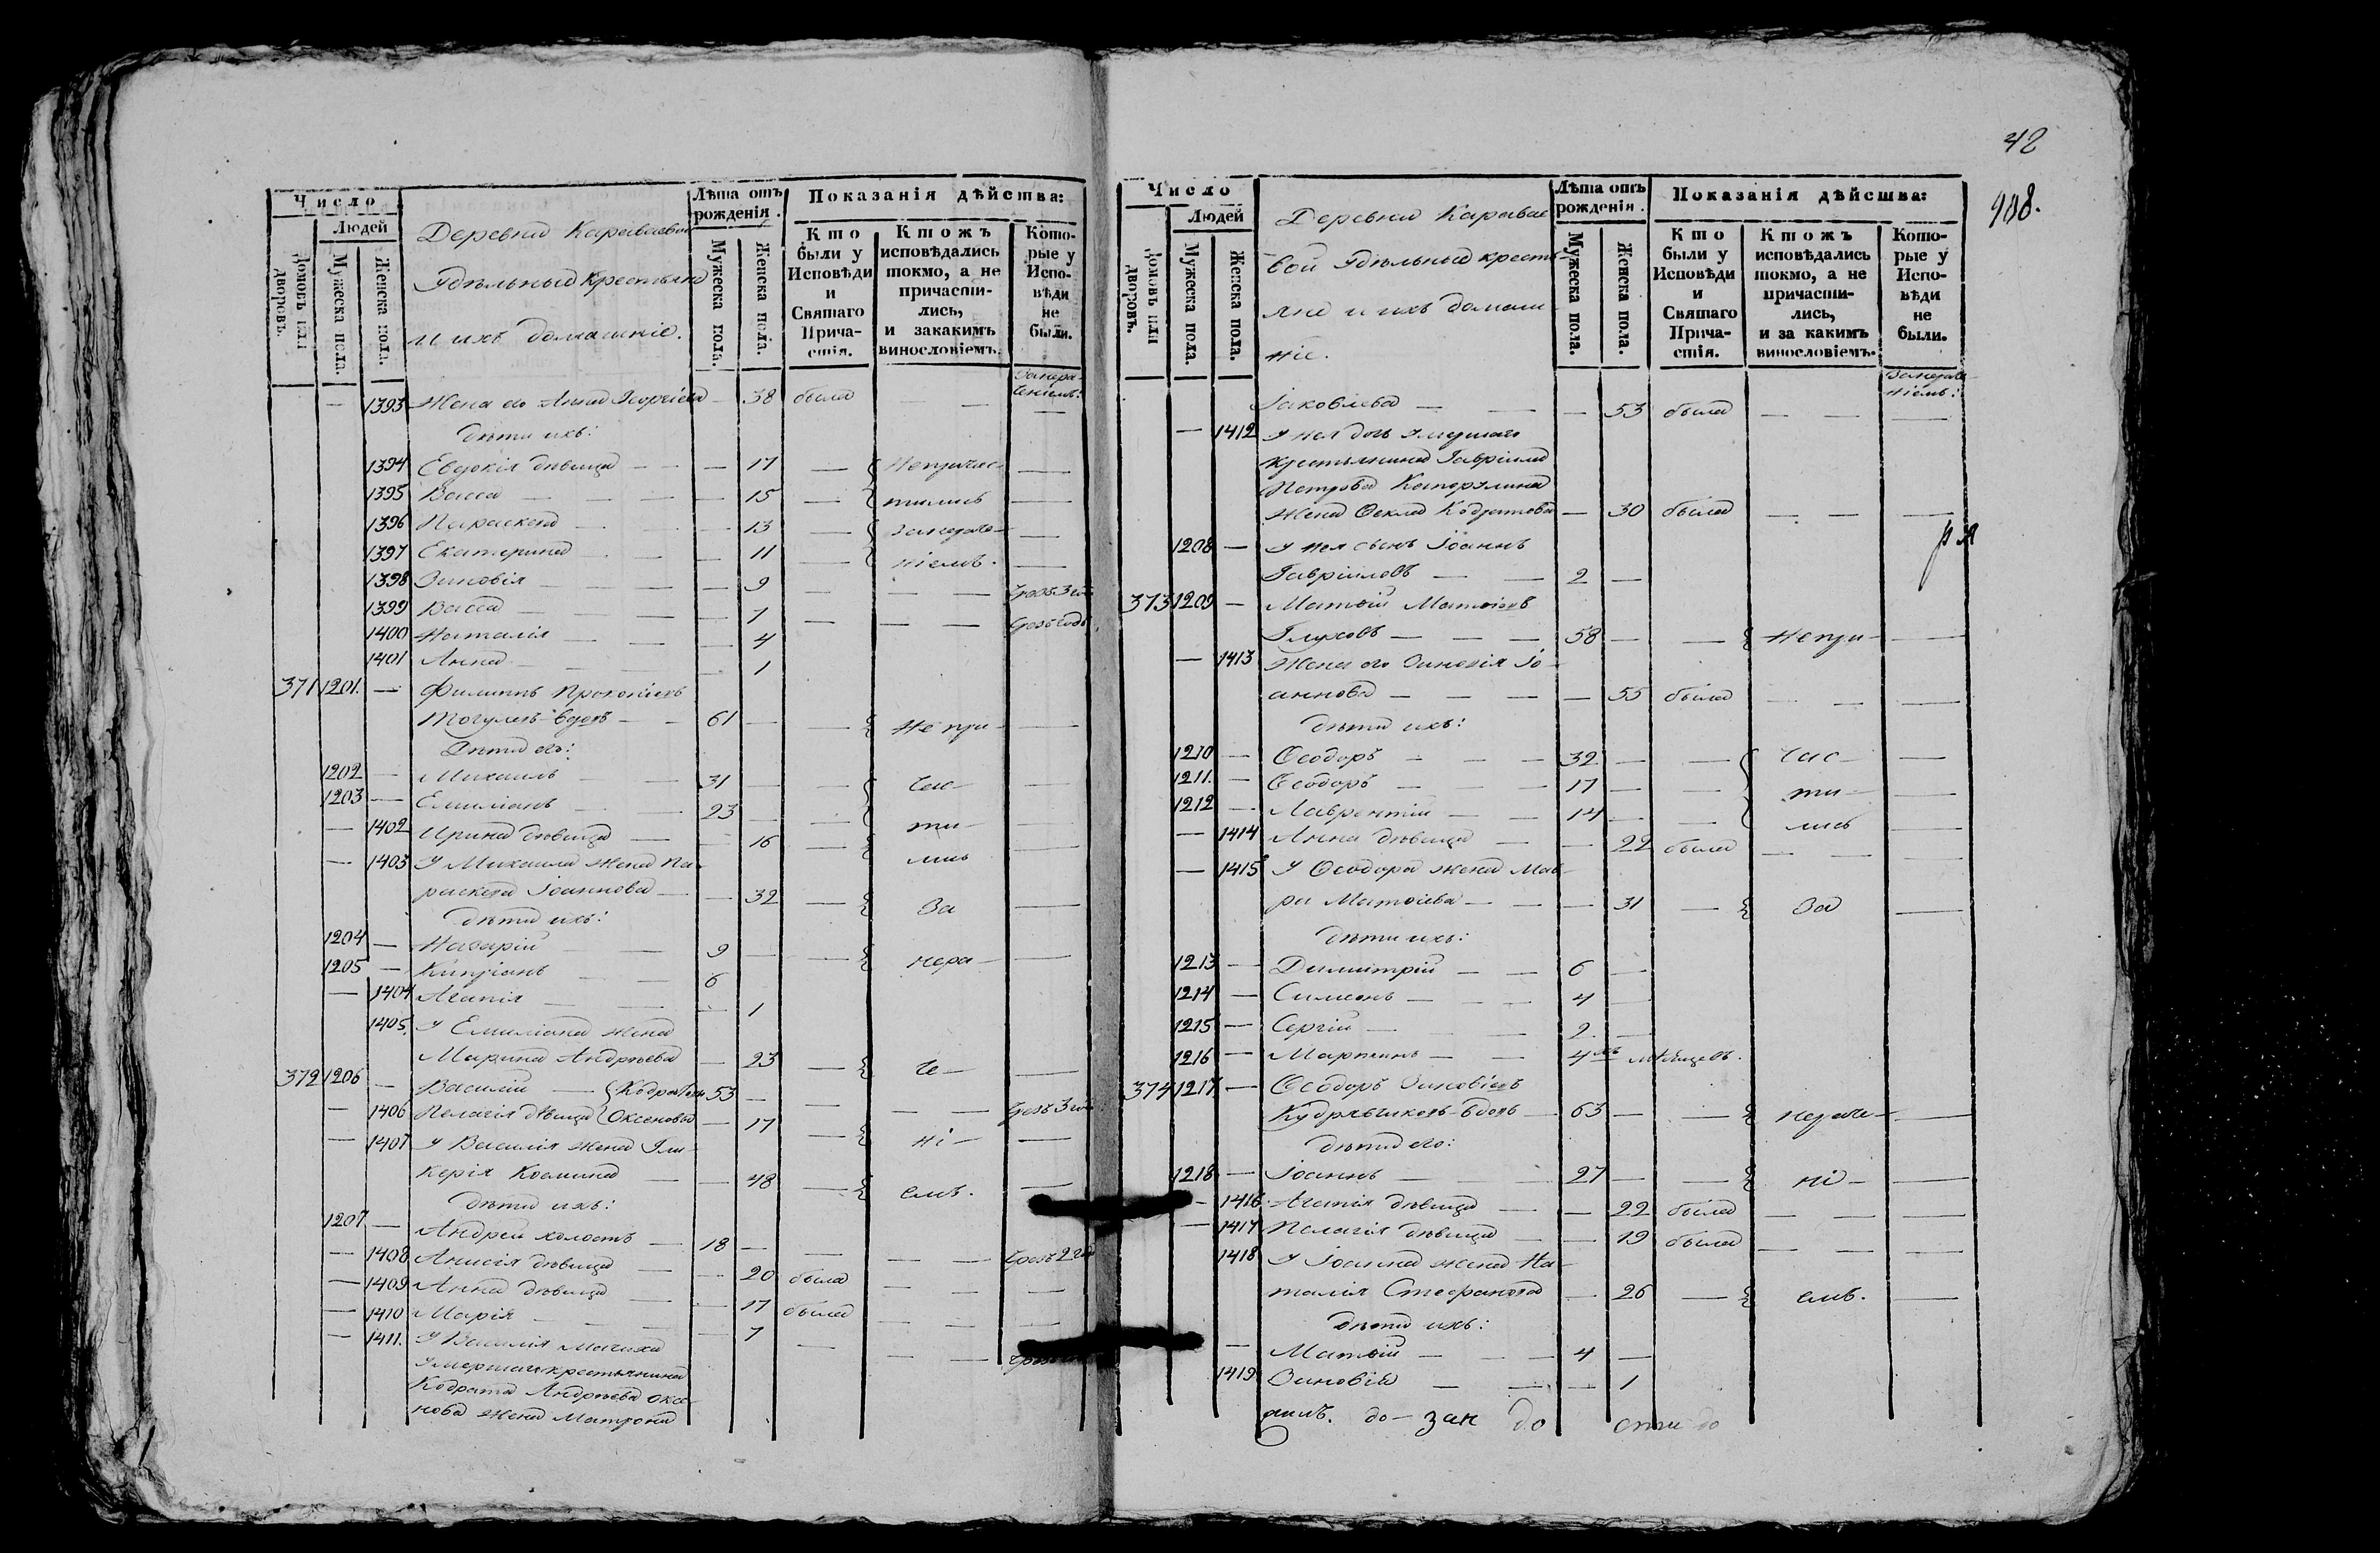 42
908.
Число
Людей
Домовъ или дворовъ.
Мужеска пола.
Женска пола.
Деревни Караваевой
Удѣльныя Крестьяне
и ихъ домашніе.
Лѣта отъ рожденія.
Мужеска пола.
Женска пола.
Показанія дѣйства:
Кто были у Исповѣди и Святаго Причастія.
Ктожъ исповѣдались токмо, а не причастились, и закакимъ винословіемъ.
Которые у Исповѣди не были.
1393 Жена его Анна Георгіева — 38 была — —
дѣти ихъ:
1394 Евдокія дѣвица — — 17 — Непричас- —
1395 Васса — — — 15 — тились —
1396 Параскева — — 13 — Занераче- —
1397 Екатерина — — 11 — ніемъ. —
1398 Зиновія — — 9 — — —
1399 Васса — — 7 — — —
1400 Наталія — — 4
1401 Анна — — 1
371 1201. — Филиппъ Прокопіевъ
вдовъ — 61 — — Не при- —
Дѣти его:
1202 — Михаилъ — 31 — — час- —
1203 — Емиліанъ — 23 — — ти- —
— 1402 Ирина дѣвица — — 16 — лись —
— 1403 У Михаила жена Па-
раскева Іоаннова — — 32 — За —
дѣти ихъ:
1204 — Назарій — 9 — — нера- —
1205 — Кипріанъ — 6
— 1404 Агапія — — 1
1405. У Емиліана жена
Марина Андрѣева — 23 — че- —
372 1206 — Василій — 53 — — — —
— 1406 Пелагія дѣвица Оксеновы — 17 — ні- —
— 1407 У Василія жена Гли-
керія Козмина — — 48 — емъ. —
дѣти ихъ:
1207 — Андрей холостъ — 18 — — — —
— 1408 Анисія дѣвица — — 20 была — —
— 1409 Анна дѣвица — — 17 была — —
— 1410 Марія — — 7 — — —
— 1411. У Василія мачиха
умершаго крестьянина
Кодрата Андрѣева Оксе-
нова жена Матрона
Число
Людей
Домовъ или дворовъ.
Мужеска пола.
Женска пола.
Деревни Каравае-
вой Удѣльныя кресть-
яне и ихъ домаш-
ніе.
Лѣта отъ рожденія.
Мужеска пола.
Женска пола.
Показанія дѣйства:
Кто были у Исповѣди и Святаго Причастія.
Ктожъ исповѣдались токмо, а не причастились, и за какимъ винословіемъ.
Которые у Исповѣди не были.
Іаковлева — — — 53 была — — —
— 1412 У нея дочь умершаго
крестьянина Гавріила
Петрова
жена Ѳекла Кодратова — 30 была — — —
1208 — У нея сынъ Іоаннъ
Гавріиловъ — — 2 —
373 1209 — Матѳій Матѳіевъ
Глуховъ — — — 58 — — Непри- —
— 1413 Жена его Зиновія Іо-
аннова — — — — 55 была — — —
дѣти ихъ:
1210 — Ѳеодоръ — — — 32 — — час- —
1211. — Ѳеодоръ — — — 17 — — ти- —
1212 — Лаврентій — — 14 — — лись —
— 1414 Анна дѣвица — — 22 была — — —
— 1415 У Ѳеодора жена Мав-
ра Матѳіева — — — 31 — За —
дѣти ихъ:
1213 — Димитрій — — 6 —
1214 — Симеонъ — — 4 —
1215 — Сергій — — 2. —
1216 — Мартинъ — — 4 мѣсяцевъ.
374 1217 — Ѳеодоръ Зиновіевъ
вдовъ — 63 — — нераче- —
дѣти его:
1218 — Іоаннъ — 27 — — ні- —
— 1416 Агапія дѣвица — — 22 была — — —
— 1417 Пелагія дѣвица — — 19 была — — —
1418 У Іоанна жена На-
талія Стефанова — 26 — емъ. —
дѣти ихъ:
— — Матѳій — — 4 —
1419 Зиновія — — — 1